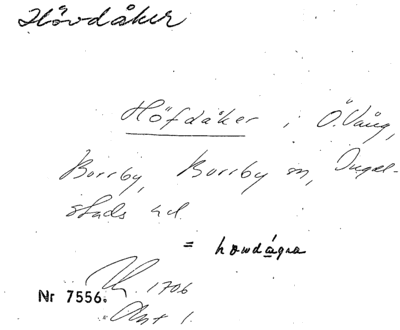 Hövdåker
Höfdåker i Ö. Vång,
Borrby, Borrby sn, Ingel-
stads hd.
= howdågra
1706
Nr 7556.
Akt 1.